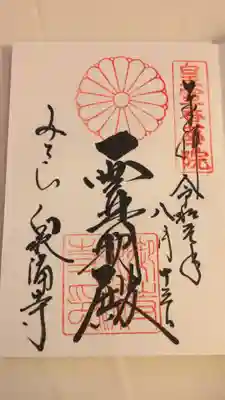 皇室香華院
奉拝
令和元年
八月十三日
霊明殿
みてら 泉涌寺